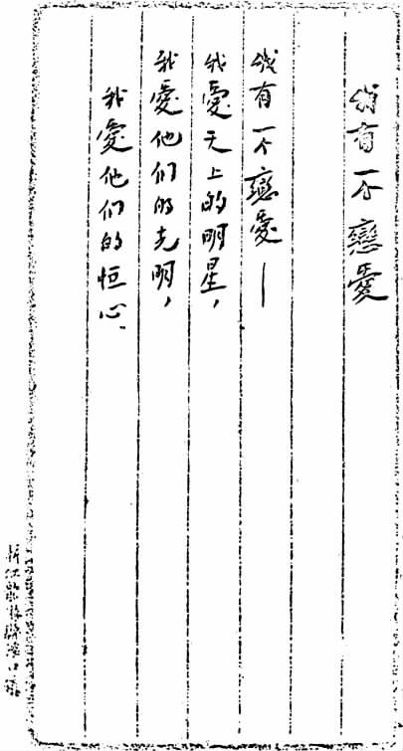 我有一个戀愛
我有一个戀愛—
我愛天上的明星，
我愛他们的光明，
我愛他们的恒心、